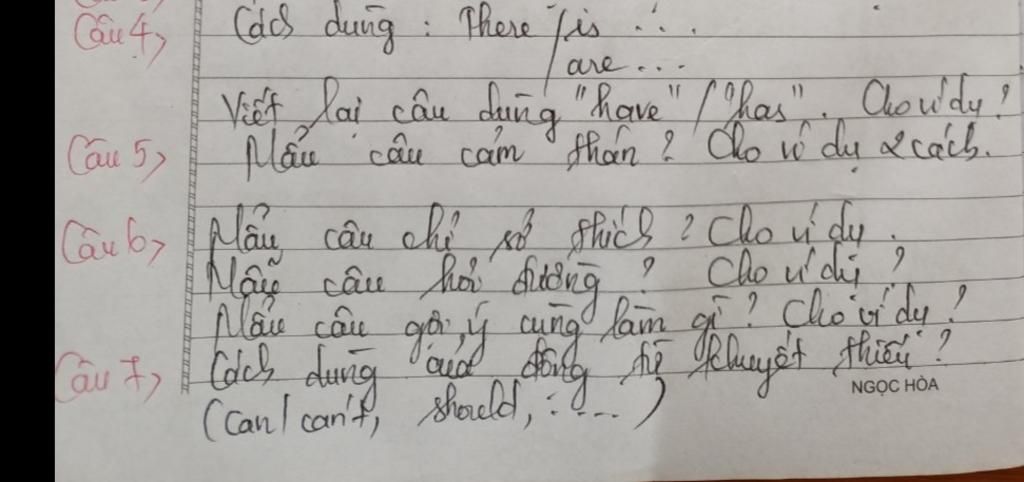 Câu 4) Cách dùng : There / is ...
are ...
Viết lại câu dùng "have" / "has". Cho ví dụ?
Câu 5) Mẫu câu cảm thán? Cho ví dụ 2 cách.
Câu 6) Mẫu câu chỉ sở thích? Cho ví dụ.
Mẫu câu hỏi đường? Cho ví dụ?
Mẫu câu gợi ý cùng làm gì? Cho ví dụ?
Câu 7) Cách dùng của động từ khuyết thiếu?
NGỌC HÒA
(can / can't, should, .....)